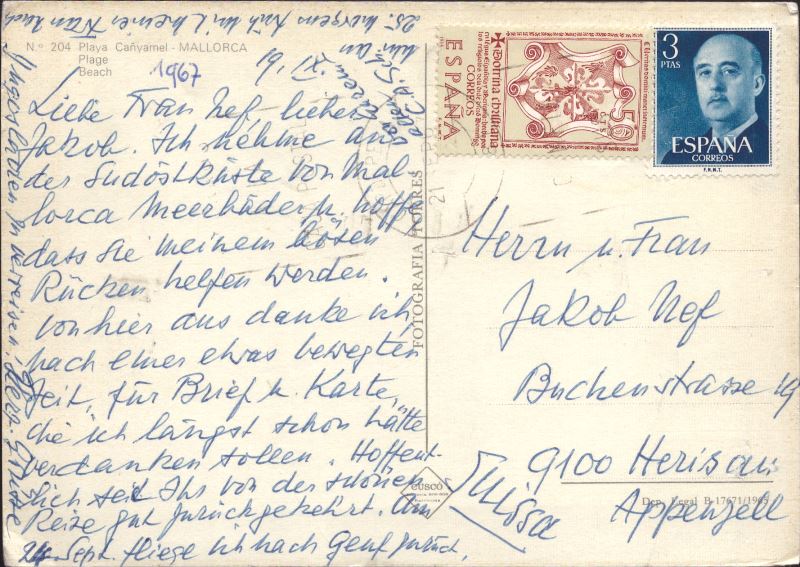 N.º 204 Playa Cañyamel - MALLORCA
Plage
Beach
1967
Liebe Frau Nef, lieber
Jakob. Ich nehme an
der Südostküste von Mal
lorca Meerbäder u. hoffe
dass Sie meinem bösen
Rücken helfen werden.
Von hier aus danke ich
nach einer etwas bewegten
Zeit, für Brief u. Karte,
die ich längst schon hätte
verdanken sollen. Hoffent-
lich seit Ihr von der schönen
Reise gut zurückgekehrt. Am
24. Sept. fliege ich nach Genf zurück,
25. morgens früh mit meiner Frau nach
Jugoslavien zu verreisen. Herzl. Grüsse
FOTOGRAFIA TORRES
CUSCÓ
Doctrina christiana
CORREOS
ESPAÑA
50
CTS
3
PTAS
ESPAÑA
CORREOS
F.N.M.T.
21
Herrn u. Frau
Jakob Nef
Buchenstrasse 19
9100 Herisau
Appenzell
Suissa
Dep. Legal B-17671/1965